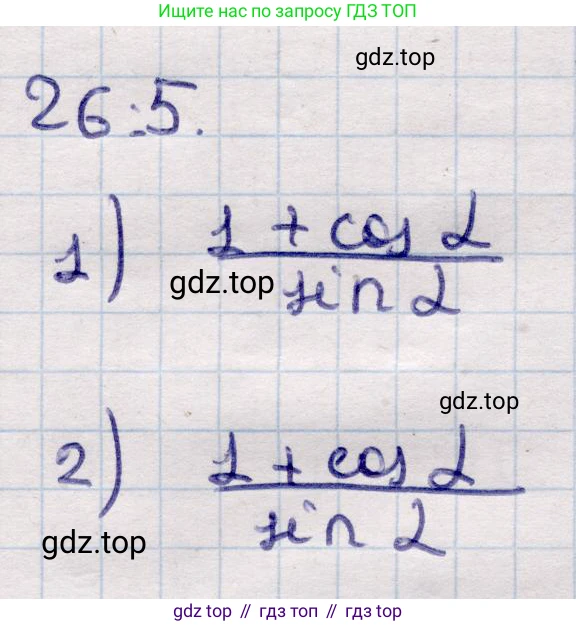 Ищите нас по запросу ГДЗ ТОП
gdz.top
26.5.
1) 1 + cos α
gdz.top
sin α
gdz.top
2) 1 + cos α
sin α
gdz.top
gdz top // гдз топ // gdz top